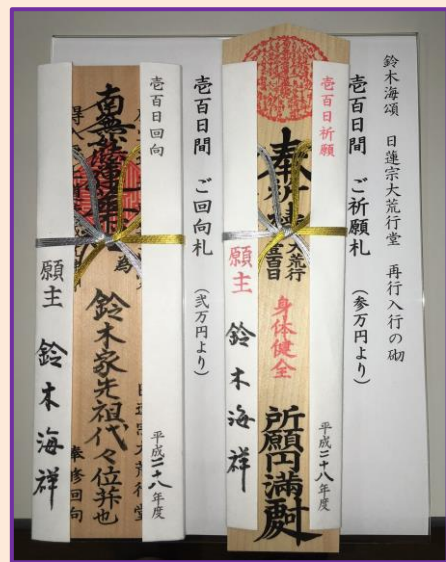 鈴木海頌 日蓮宗大荒行堂 再行入行の砌
壱百日間 ご祈願札 (参万円より)
壱百日祈願
平成二十八年度
大荒行
壱百日
身体健全
所願円満
願主 鈴木海祥
壱百日間 ご回向札 (弐万円より)
壱百日回向
平成二十八年度
南無
為
鈴木家先祖代々
也
奉修回向
願主 鈴木海祥